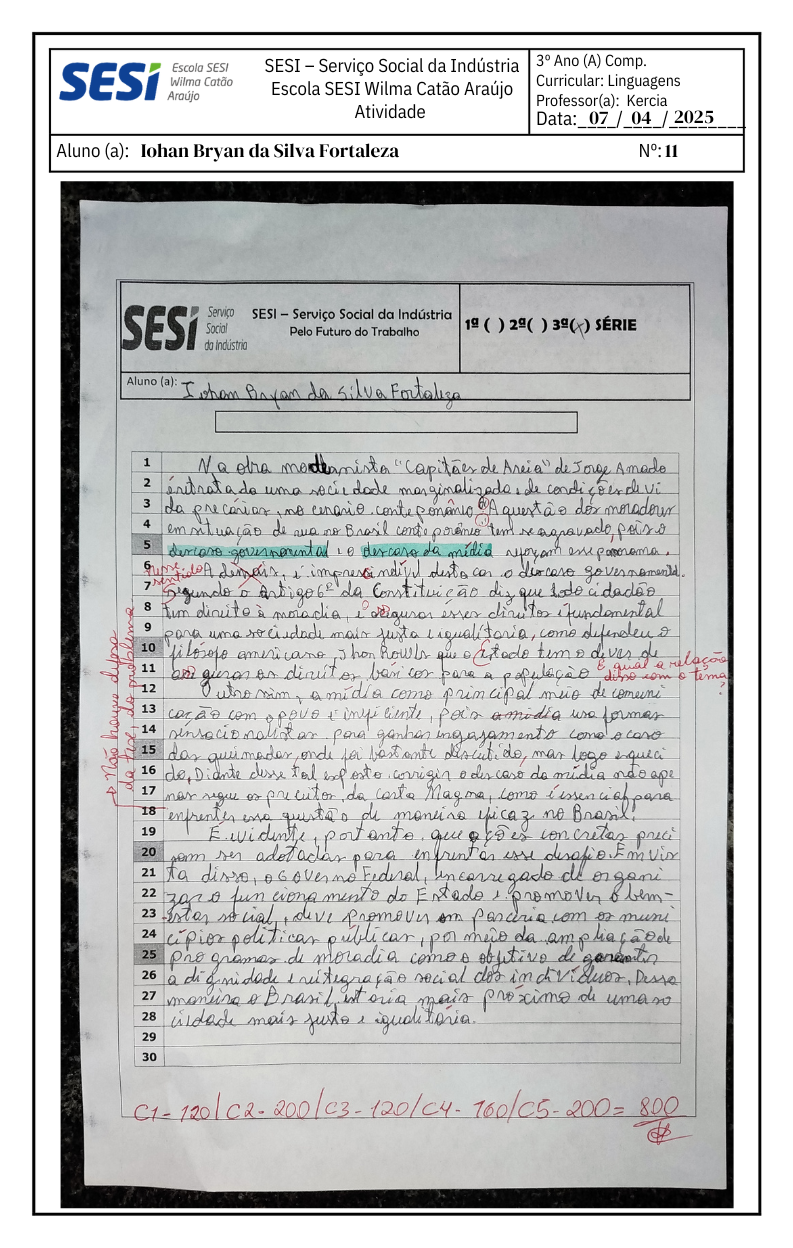 SESI
Escola SESI
Wilma Catão
Araújo
SESI – Serviço Social da Indústria
Escola SESI Wilma Catão Araújo
Atividade
3º Ano (A) Comp.
Curricular: Linguagens
Professor(a): Kercia
Data: 07 / 04 / 2025
Aluno (a): Iohan Bryan da Silva Fortaleza Nº: 11
SESI
Serviço
Social
da Indústria
SESI – Serviço Social da Indústria
Pelo Futuro do Trabalho
1º ( ) 2º( ) 3º(x) SÉRIE
Aluno (a): Iohan Bryan da Silva Fortaleza
1 Na obra modernista "Capitães de Areia" de Jorge Amado
2 é ritratado uma sociedade marginalizada e de condições de vi
3 da precárias, no cenario conteponânio. A questão dos moradores
4 em situação de rua no Brasil conteporânio tem se agravado, pois o
5 descaso governamental e o descaso da mídia reforçam esse panorama.
6 Ademais, é imprescindível destacar o descaso governamental.
7 Segundo o artigo 6º da Constituição diz que todo cidadão
8 tem direito à moradia, e asegurar esses direitos é fundamental
9 para uma sociedade mais justa e igualitaria, como defendeu o
10 filósofo americano, Jhon Rowls que o Estado tem o dever de
11 asigurar os direitos basicos para a população
12 Outrossim, a mídia como principal meio de comuni
13 cação com o povo é inificiente, pois a mídia usa formas
14 sensacionalistas para ganhar ingajamento como o caso
15 das queimadas, onde foi bastante discutido, mas logo esqueci
16 do. Diante desse tal esposto corrigir o descaso da mídia não ape
17 nas segue os preceitos da Carta Magna, como é essencial para
18 enfrentar essa questão de maneira eficaz no Brasil.
19 É evidente, portanto, que ações concretas preci
20 sam ser adotadas para enfrentar esse desafio. Em vis
21 ta disso, o Governo Federal, encarregado de organi
22 zar o funcionamento do Estado e promover o bem-
23 -estar social, deve promover em parceria com os muni
24 cípios políticas públicas, por meio da ampliação de
25 programas de moradia com o objetivo de garantir
26 a dignidade e reitegração social dos indivíduos. Dessa
27 maneira o Brasil estaria mais próximo de uma so
28 ciedade mais justa e igualitária.
29
30
sentido
E qual a relação
disso com o tema
?
→ Não houve defesa
da tese, do problema
C1- 120/C2- 200/C3- 120/C4- 160/C5- 200= 800